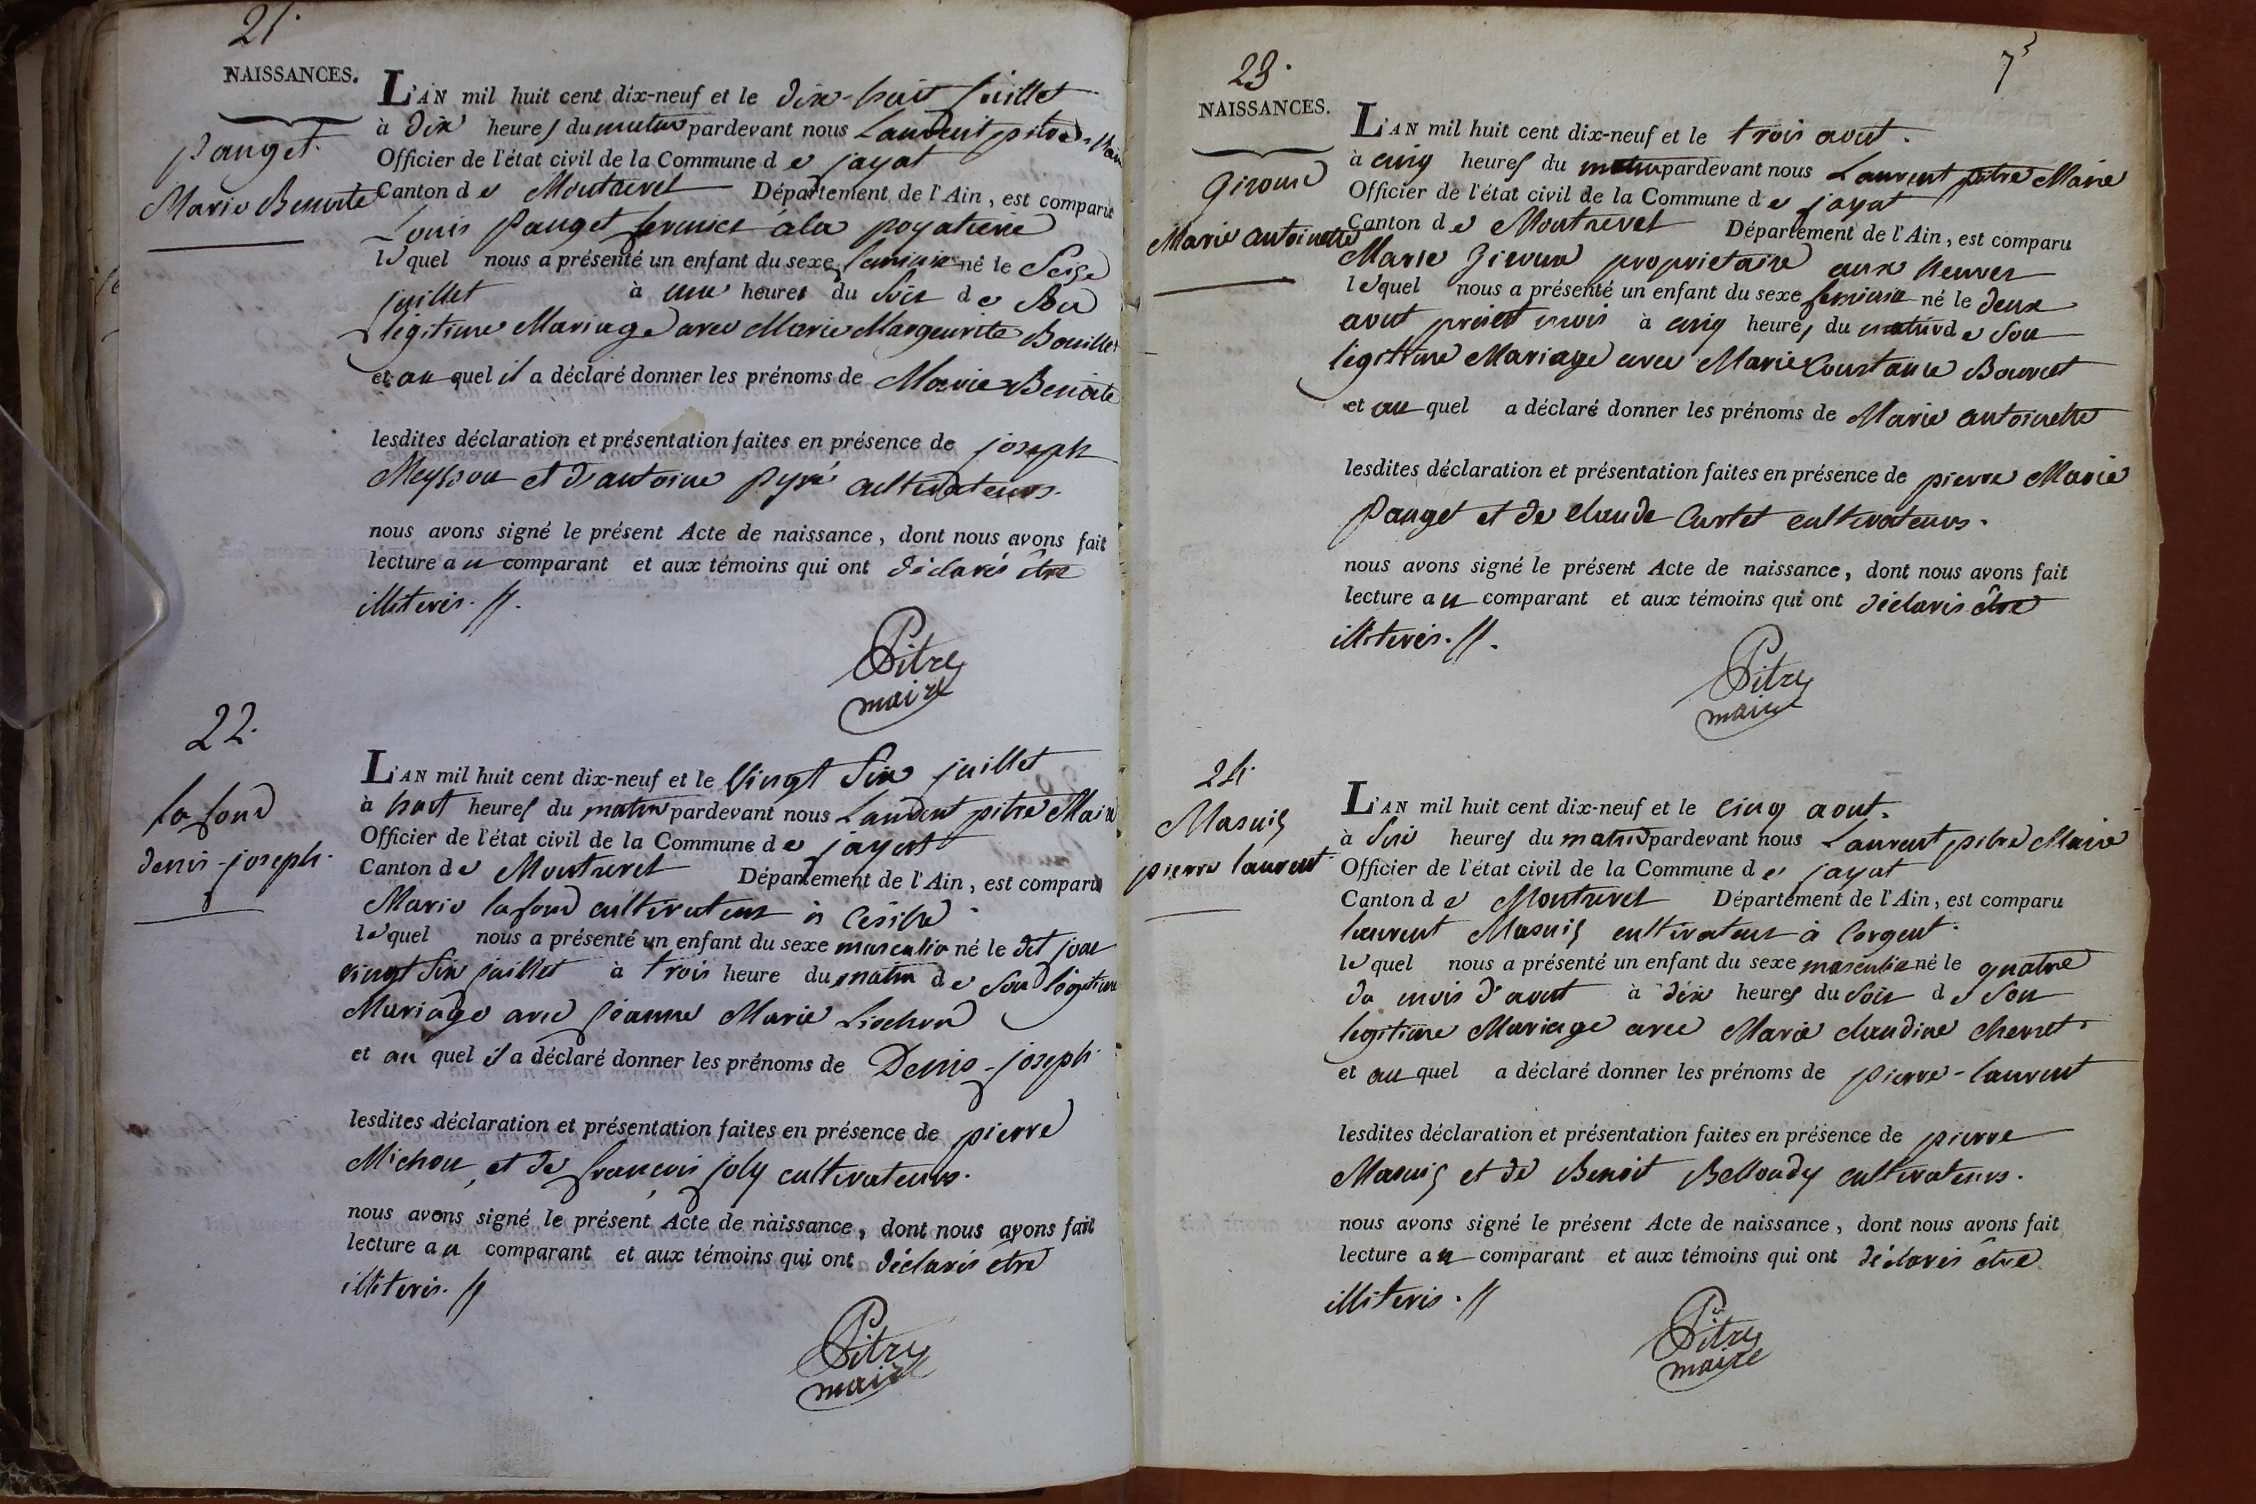 21.
NAISSANCES.
pauget.
Marie Benoite
L'AN mil huit cent dix-neuf et le dix-huit juillet
à dix heures du matin pardevant nous Laurent pitre Maire
Officier de l'état civil de la Commune de jayat
Canton de Montrevel Département de l'Ain, est comparu
Louis Pauget fermier à la poyatiere
lequel nous a présenté un enfant du sexe feminin né le Seize
juillet à une heures du Soir de Son
légitime Mariage avec Marie Margeurite Bouillet
et au quel il a déclaré donner les prénoms de Marie Benoite
lesdites déclaration et présentation faites en présence de joseph
Meysson et d'antoine pyré cultivateurs.
nous avons signé le présent Acte de naissance, dont nous avons fait
lecture au comparant et aux témoins qui ont déclarés être
illiterés. //.
Pitre
maire
22.
la fond
denis-joseph.
L'AN mil huit cent dix-neuf et le Vingt Six juillet
à huit heures du matin pardevant nous Laurent pitre Maire
Officier de l'état civil de la Commune de jayat
Canton de Montrevel Département de l'Ain, est comparu
Marie lafond cultivateur à
lequel nous a présenté un enfant du sexe masculin né le dit jour
vingt Six juillet à trois heure du matin de Son légitime
Mariage avec jeanne Marie
et au quel il a déclaré donner les prénoms de Denis-joseph.
lesdites déclaration et présentation faites en présence de pierre
Michon et de françois joly cultivateurs.
nous avons signé le présent Acte de naissance, dont nous avons fait
lecture au comparant et aux témoins qui ont déclarés être
illiterés. //
Pitre
maire
23.
NAISSANCES.
Marie antoinette
L'AN mil huit cent dix-neuf et le trois aout.
à cinq heures du matin pardevant nous Laurent pitre Maire
Officier de l'état civil de la Commune de jayat
Canton de Montrevel Département de l'Ain, est comparu
Marie proprietaire aux
lequel nous a présenté un enfant du sexe feminin né le deux
aout présent mois à cinq heures du matin de Son
légitime Mariage avec Marie Constance
et au quel a déclaré donner les prénoms de Marie antoinette
lesdites déclaration et présentation faites en présence de pierre Marie
Pauget et de claude Curtet cultivateurs.
nous avons signé le présent Acte de naissance, dont nous avons fait
lecture au comparant et aux témoins qui ont déclarés être
illiterés. //.
Pitre
maire
24.
Masuis
pierre laurent
L'AN mil huit cent dix-neuf et le cinq aout.
à Six heures du matin pardevant nous Laurent pitre Maire
Officier de l'état civil de la Commune de jayat
Canton de Montrevel Département de l'Ain, est comparu
laurent Masuis cultivateur à Corgent.
lequel nous a présenté un enfant du sexe masculin né le quatre
du mois d'aout à dix heures du Soir de Son
legitime Mariage avec Marie claudine
et au quel a déclaré donner les prénoms de pierre-laurent
lesdites déclaration et présentation faites en présence de pierre
Masuis et de Benoit Belloudy cultivateurs.
nous avons signé le présent Acte de naissance, dont nous avons fait
lecture au comparant et aux témoins qui ont déclarés être
illiterés. //
Pitre
maire